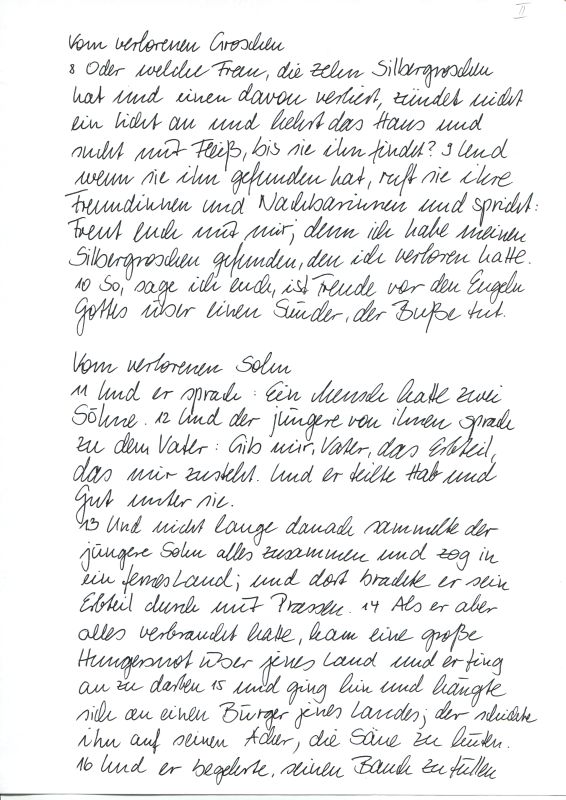 II
Vom verlorenen Groschen
8 Oder welche Frau, die zehn Silbergroschen
hat und einen davon verliert, zündet nicht
ein Licht an und kehrt das Haus und
sucht mit Fleiß, bis sie ihn findet? 9 Und
wenn sie ihn gefunden hat, ruft sie ihre
Freundinnen und Nachbarinnen und spricht:
Freut euch mit mir; denn ich habe meinen
Silbergroschen gefunden, den ich verloren hatte.
10 So, sage ich euch, ist Freude vor den Engeln
Gottes über einen Sünder, der Buße tut.
Vom verlorenen Sohn
11 Und er sprach: Ein Mensch hatte zwei
Söhne. 12 Und der jüngere von ihnen sprach
zu dem Vater: Gib mir, Vater, das Erbteil,
das mir zusteht. Und er teilte Hab und
Gut unter sie.
13 Und nicht lange danach sammelte der
jüngere Sohn alles zusammen und zog in
ein fernes Land; und dort brachte er sein
Erbteil durch mit Prassen. 14 Als er aber
alles verbraucht hatte, kam eine große
Hungersnot über jenes Land und er fing
an zu darben 15 und ging hin und hängte
sich an einen Bürger jenes Landes; der schickte
ihn auf seinen Acker, die Säue zu hüten.
16 Und er begehrte, seinen Bauch zu füllen